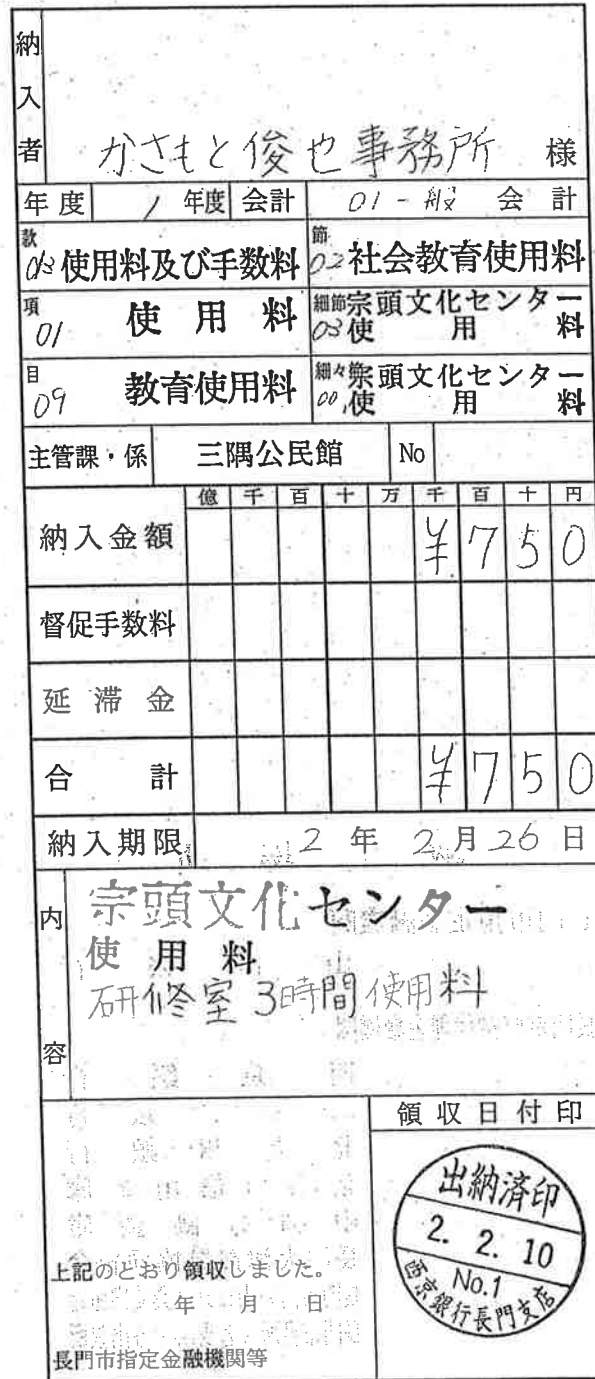 納入者
かさもと俊也事務所 様
年度 1 年度 会計 01一般 会計
款 03 使用料及び手数料 節 02 社会教育使用料
項 01 使用料 細節 03 宗頭文化センター使用料
目 09 教育使用料 細々節 00 宗頭文化センター使用料
主管課・係 三隅公民館 No
億 千 百 十 万 千 百 十 円
納入金額 ¥750
督促手数料
延滞金
合計 ¥750
納入期限 2年2月26日
内容
宗頭文化センター
使用料
研修室3時間使用料
領収日付印
出納済印
2. 2. 10
No.1
西京銀行長門支店
上記のとおり領収しました。
年 月 日
長門市指定金融機関等